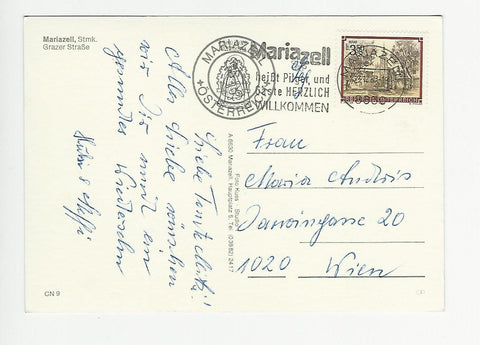 Mariazell, Stmk.
Grazer Straße
MARIAZELL
ÖSTERREICH
Mariazell
heißt Pilger und
Gäste HERZLICH
WILLKOMMEN
8630
Liebe Tante
Alles Liebe wünschen
wir Dir und ein
gesundes Wiedersehn
Steffi
Foto Kuss
A 8630 Mariazell, Hauptplatz 5, Tel. (03882) 2417
Frau
Maria
Darwingasse 20
1020 Wien
GN 9